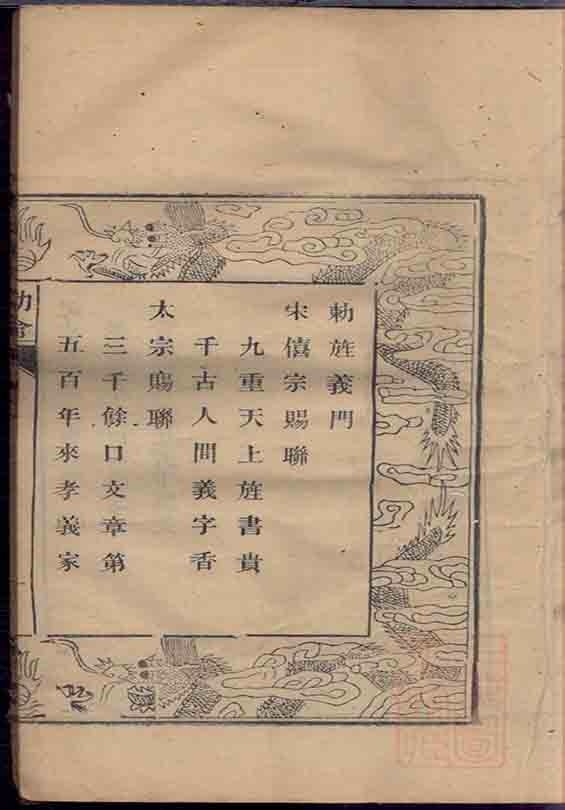 勅旌義門
宋僖宗賜聯
九重天上旌書貴
千古人間義字香
太宗賜聯
三千餘口文章第
五百年來孝義家